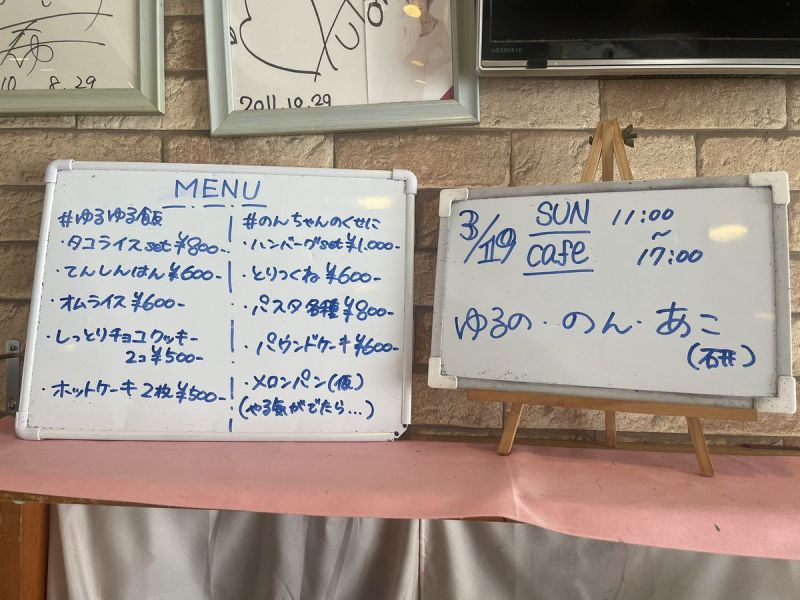 8.29
2011.10.29
MENU
#ゆるゆる飯
・タコライスset ¥800-
・てんしんはん ¥600-
・オムライス ¥600-
・しっとりチョコクッキー
2コ ¥500-
・ホットケーキ2枚 ¥500-
#のんちゃんのくせに
・ハンバーグset ¥1,000-
・とりつくね ¥600-
・パスタ各種 ¥800-
・パウンドケーキ ¥600-
・メロンパン(仮)
(やる気がでたら...)
3/19 SUN 11:00
cafe ~
17:00
ゆるの・のん・あこ
(石井)